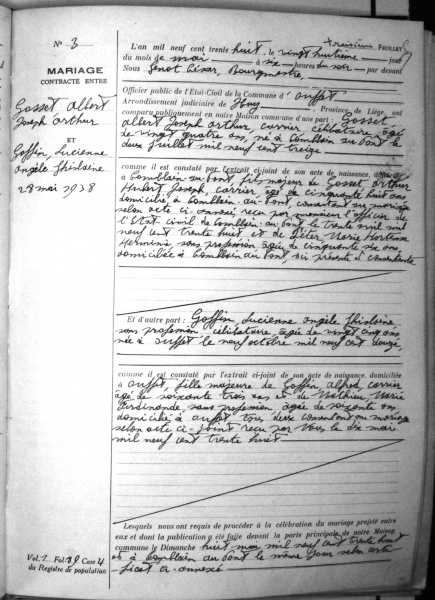 troisième FEUILLET
N° 3
MARIAGE
CONTRACTÉ ENTRE
Gosset Albert
Joseph Arthur
ET
Goffin, Lucienne
Angèle Ghislaine
28 mai 1938
L'an mil neuf cent trente huit, le vingt huitième jour
du mois de mai à six heures du soir par devant
Nous Genot César, Bourgmestre,
Officier public de l'Etat-Civil de la Commune d'Ouffet
Arrondissement judiciaire de Huy Province de Liége, ont
comparu publiquement en notre Maison commune d'une part: Gosset
Albert Joseph Arthur, carrier célibataire âgé
de vingt quatre ans, né à Comblain au Pont le
deux juillet mil neuf cent treize
comme il est constaté par l'extrait ci-joint de son acte de naissance,
à Comblain-au-Pont, fils majeur de Gosset Arthur
Hubert Joseph, carrier, âgé de cinquante huit ans
domicilié à Comblain-au-Pont, consentant au mariage
selon acte ci-annexé reçu par monsieur l'officier de
l'Etat civil de Comblain-au-Pont le trente mil
neuf cent trente huit et de Marie Hortense
Herminie, sans profession âgée de cinquante six ans
domiciliée à Comblain au Pont, ici présente et consentante
Et d'autre part: Goffin, Lucienne Angèle Ghislaine
sans profession célibataire âgée de vingt cinq ans
née à Ouffet le neuf octobre mil neuf cent douze,
comme il est constaté par l'extrait ci-joint de son acte de naissance, domiciliée
à Ouffet, fille majeure de Goffin Alfred, carrier
âgé de soixante trois ans et de Mathieu Marie
Ferdinande, sans profession, âgée de soixante ans
domiciliés à Ouffet tous deux consentant au mariage
selon acte ci-joint reçu par Nous le dix mai
mil neuf cent trente huit
Lesquels nous ont requis de procéder à la célébration du mariage projeté entre
eux et dont la publication a été faite devant la porte principale de notre Maison
commune le Dimanche huit mai mil neuf cent trente huit
et à Comblain au Pont le même jour selon certi-
ficat ci-annexé
Vol. 1 Fol. 39 Case 4
du Registre de population